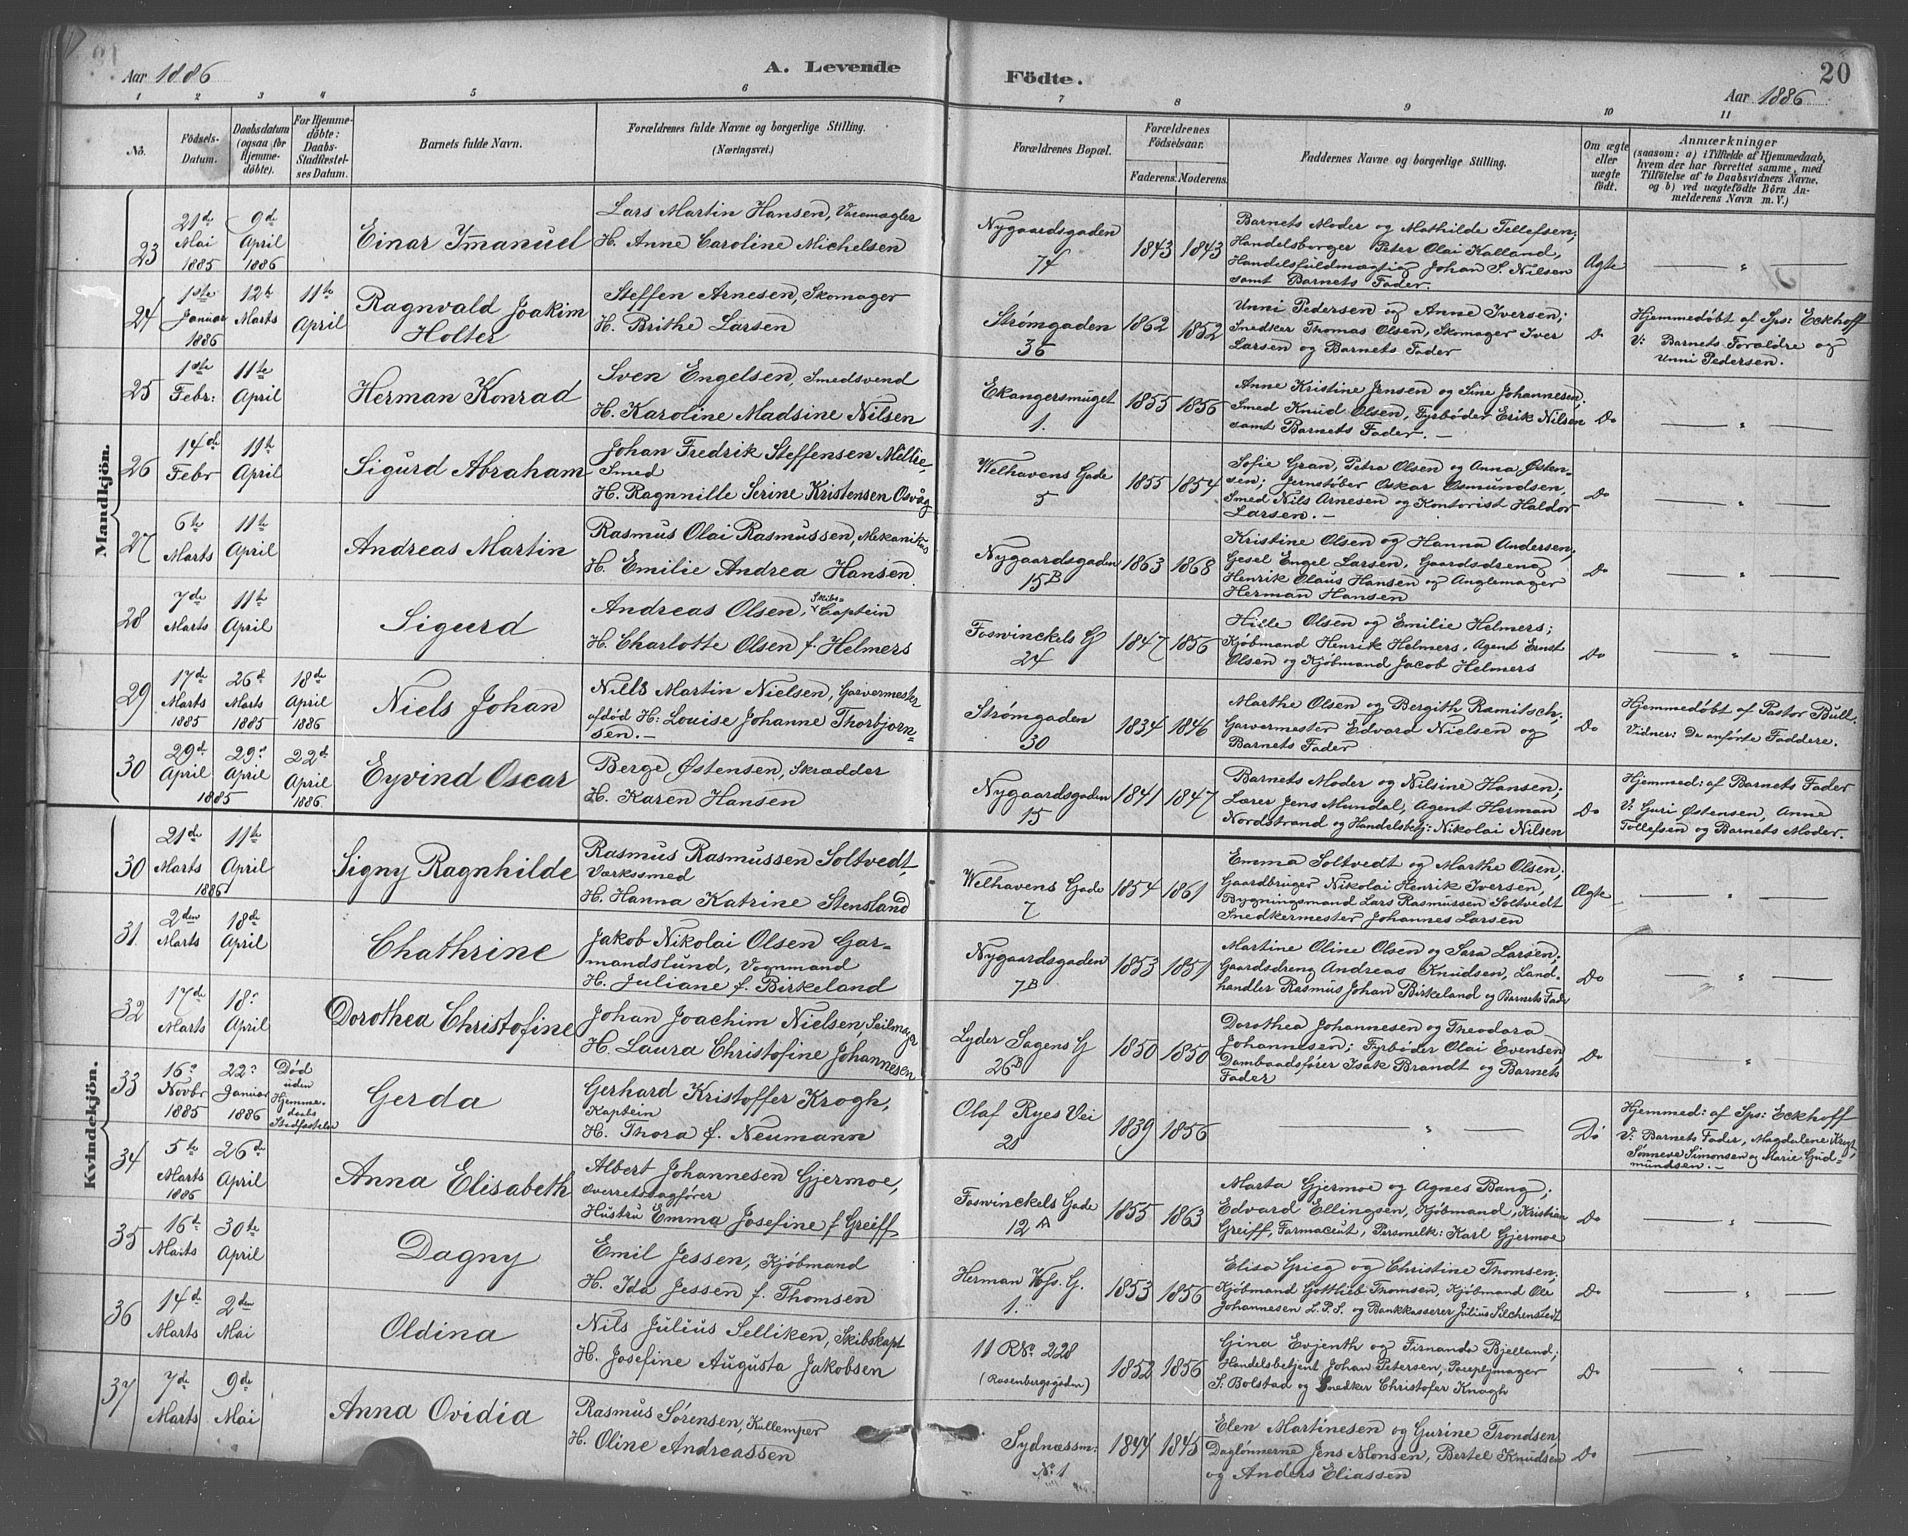 Aar 1886
A. Levende
Födte.
20
Aar 1886
1 2 3 4 5 6 7 8 9 10 11
No.
Födsels-
Datum.
Daabsdatum
(ogsaa for
Hjemme-
döbte).
For Hjemme-
döbte:
Daabs-
Stadfæstel-
ses Datum.
Barnets fulde Navn.
Forældrenes fulde Navne og borgerlige Stilling.
(Næringsvei.)
Forældrenes Bopæl.
Forældrenes
Födselsaar.
Faderens. Moderens.
Faddernes Navne og borgerlige Stilling.
Om ægte
eller
uægte
födt.
Anmærkninger
(saasom: a) i Tilfælde af Hjemmedaab,
hvem der har forrettet samme, med
Tilföielse af to Daabsvidners Navne,
og b) ved uægtefödte Börn An-
melderens Navn m. V.)
Mandkjön.
23
21de Mai 1885
9de April 1886
Einar Imanuel
Lars Martin Hansen, Varamægler
H. Anne Caroline Michelsen
Nygaardsgaden
74
1843 1843
Barnets Moder og Mathilde Tellefsen;
Handelsborger Peter Olai Kalland,
Handelsfuldmægtig Johan S. Nilsen
samt Barnets Fader.
Ægte
— " —
24
1ste Januar 1886
12te Marts
11te April
Ragnvald Joakim
Holter
Steffen Arnesen, Skomager
H. Brithe Larsen
Strømgaden
36
1862 1852
Unni Pedersen og Anne Iversen;
Snedker Thomas Olsen, Skomager Iver
Larsen og Barnets Fader
Do
Hjemmedøbt af Sps: Eckhoff
V: Barnets Forældre og
Unni Pedersen.
25
1ste Febr:
11te April
Herman Konrad
Sven Engelsen, Smedsvend
H. Karoline Madsine Nilsen
Ekangersmuget
1.
1855 1856
Anne Kristine Jensen og Sine Johannesen;
Smed Knud Olsen, Fyrbøder Erik Nilsen
samt Barnets Fader. —
Do
— " —
26
14de Febr
11te April
Sigurd Abraham
Johan Fredrik Steffensen
Smed
H. Ragnnille Serine Kristensen Osvåg
Welhavens Gade
5
1855 1854
Sofie Gran, Petra Olsen og Anna Østen-
sen; Jernstøber Oskar Osmundsen,
Smed Nils Arnesen og Kontorist Haldor
Larsen. —
Do
— " —
27
6te Marts
11te April
Andreas Martin
Rasmus Olai Rasmussen, Mekanikus
H. Emilie Andrea Hansen
Nygaardsgaden
15B
1863 1868
Kristine Olsen og Hanna Andersen;
Gesel Engel Larsen, Gaardsdreng
Henrik Olaus Hansen og Anglemager
Herman Hansen
Do
— " —
28
7de Marts
11te April
Sigurd
Andreas Olsen, Skibs-Captein
H. Charlotte Olsen f. Helmers
Foswinckels G
24
1847 1856
Hille Olsen og Emilie Helmers;
Kjøbmand Henrik Helmers, Agent Ernst
Olsen og Kjøbmand Jacob Helmers
Do
— " —
29
17de Marts 1885
26de Marts 1885
18de April 1886
Niels Johan
Nills Martin Nielsen, Garvermester
afdød H: Louise Johanne Thorbjørn-
sen. —
Strømgaden
30
1834 1846
Marthe Olsen og Bergith Ramitsch;
Garvermester Edvard Nielsen og
Barnets Fader
Do
Hjemmedøbt af Pastor Bull.
Vidner: De anførte Faddere.
30
29de April
29de April
1885
22de April 1886
Eyvind Oscar
Berge Østensen, Skrædder
H. Karen Hansen
Nygaardsgaden
15
1841 1847
Barnets Moder og Nilsine Hansen;
Lærer Jens Mundal, Agent Herman
Nordstrand og Handelsbetj: Nikolai Nilsen
Do
Hjemmed: af Barnets Fader
V: Guri Østensen, Anne
Tollefsen og Barnets Moder.
Kvindekjön.
30
21de Marts
11te April
1886
Signy Ragnhilde
Rasmus Rasmussen Soltvedt,
Værkssmed
H. Hanna Katrine Stensland
Welhavens Gade
7
1854 1861
Emma Soltvedt og Marthe Olsen;
Gaardbruger Nikolai Henrik Iversen,
Bygningsmand Lars Rasmussen Soltvedt
Snedkermester Johannes Larsen
Ægte
— " —
31
2den Marts
18de April
Chathrine
Jakob Nikolai Olsen Gar-
mandslund, Vognmand
H. Juliane f. Birkeland
Nygaardsgaden
7B
1853 1851
Martine Oline Olsen og Sara Larsen;
Gaardsdreng Andreas Knudsen, Land-
handler Rasmus Johan Birkeland og Barnets Fader
Do
— " —
32
17de Marts
18de April
Dorothea Christofine
Johan Joachim Nielsen, Seilmager
H. Laura Christofine Johannesen
Lyder Sagens G
26B
1850 1850
Dorothea Johannesen og Theodora
Johannesen; Fyrbøder Olai Evensen,
Dambaadsfører Isak Brandt og Barnets
Fader
Do
"
33
16de Novbr 1885
22de Januar 1886
Død
uden
Hjemme-
daabs
Stadfæstelse
Gerda
Gerhard Kristoffer Krogh,
Kaptein
H. Thora f. Neumann
Olaf Ryes Vei
1839 1856
— " —
Do
Hjemmed: af Sps: Eckhoff
V: Barnets Fader, Magdalene
Sønneve Simonsen og Marie Gud-
mundsen. —
34
5te Marts 1886
26de April
Anna Elisabeth
Albert Johannesen Gjermoe,
Overretssagfører
Hustru Emma Josefine f Greiff
Foswinckels Gade
12 A
1855 1863
Marta Gjermoe og Agnes Bang;
Edvard Ellingsen, Kjøbmand, Kristian
Greiff, Farmaceut, Personelk: Karl Gjermoe
Do
— " —
35
16de Marts
30te April
Dagny
Emil Jessen, Kjøbmand
H. Ida Jessen f. Thomsen
Herman Fos. G.
1.
1853 1856
Elisa Grieg og Christine Thomsen;
Kjøbmand Gottlieb Thomsen, Kjøbmand Ole
Johannesen L.P.S. og Bankkasserer Julius Silchenstedt
Do
— " —
36
14de Marts
2den Mai
Oldina
Nils Julius Selliken, Skibskapt
H. Josefine Augusta Jakobsen
11 RNo. 228
(Rosenbergsgaden)
1852 1856
Gina Evjenth og Firnanda Bjelland;
Handelsbetjent Johan Petersen, Paraplymager
S. Bolstad og Snedker Christofer Krogh
Do
"
37
7de Marts
9de Mai
Anna Ovidia
Rasmus Sørensen, Kullemper
H. Oline Andreassen
Sydnæssm:
No. 1
1844 1845
Elen Martinesen og Gurine Trondsen
Daglønnerne Jens Monsen, Bertel Knudsen
og Anders Eliassen
Do
— " —